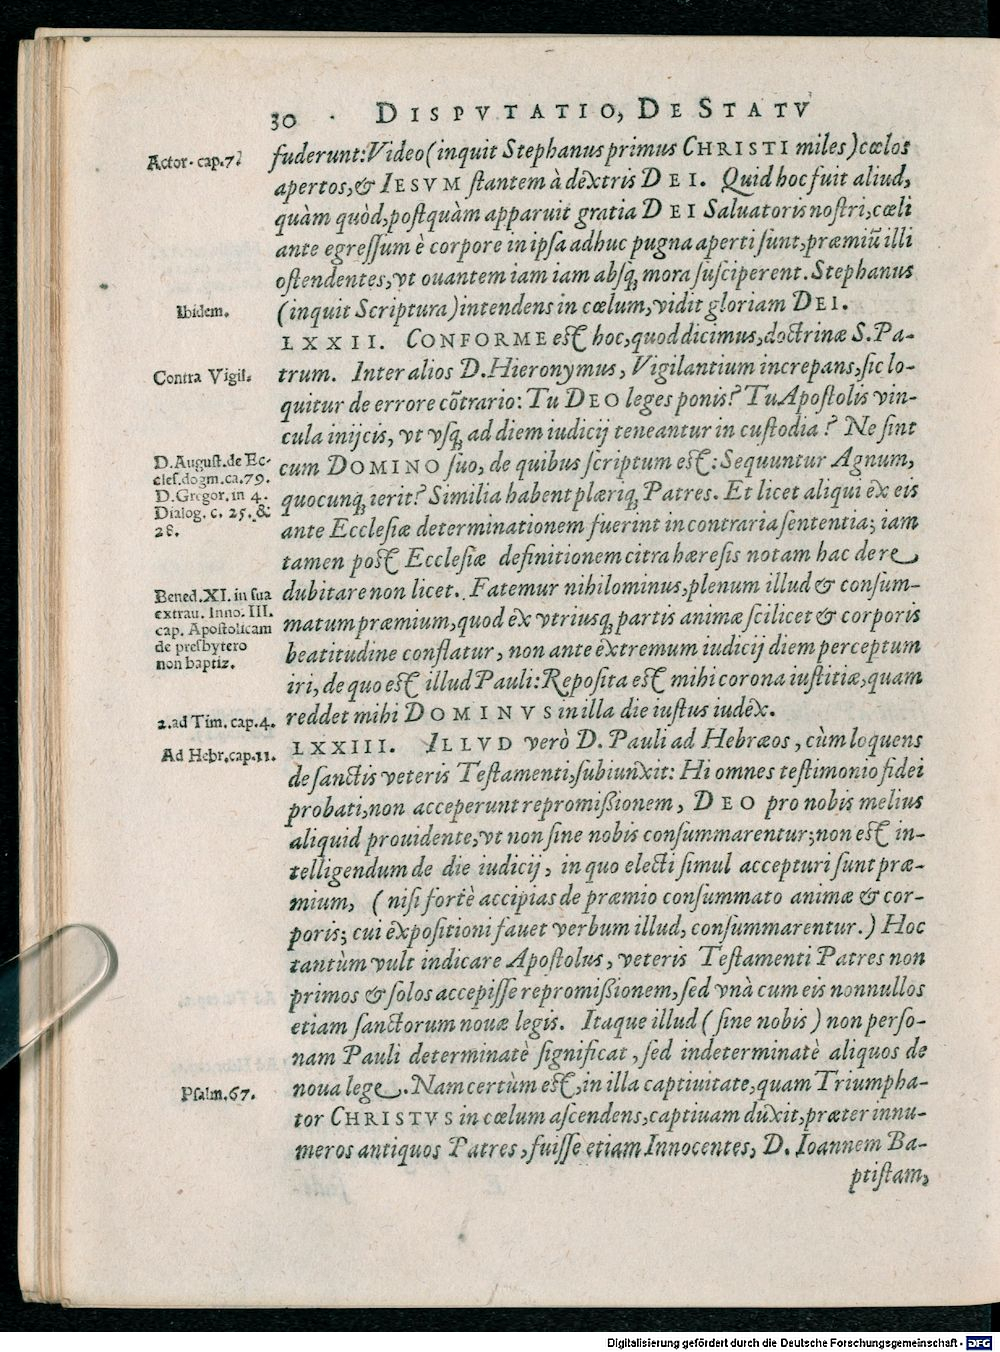 30 . DISPVTATIO, DE STATV
Actor. cap. 7.
fuderunt: Video (inquit Stephanus primus CHRISTI miles) cœlos
apertos, & IESVM stantem à dextris DEI. Quid hoc fuit aliud,
quàm quòd, postquàm apparuit gratia DEI Saluatoris nostri, cœli
ante egressum è corpore in ipsa adhuc pugna aperti sunt, præmiũ illi
ostendentes, vt ouantem iam iam absq; mora susciperent. Stephanus
Ibidem.
(inquit Scriptura) intendens in cœlum, vidit gloriam DEI.
LXXII. CONFORME est hoc, quod dicimus, doctrinæ S. Pa-
Contra Vigil.
trum. Inter alios D. Hieronymus, Vigilantium increpans, sic lo-
quitur de errore cõtrario: Tu DEO leges ponis? Tu Apostolis vin-
cula inijcis, vt vsq; ad diem iudicij teneantur in custodia? Ne sint
D. August. de Ec-
cles. dogm. ca. 79.
D. Gregor. in 4.
Dialog. c. 25. &
28.
cum DOMINO suo, de quibus scriptum est: Sequuntur Agnum,
quocunq; ierit? Similia habent plæriq; Patres. Et licet aliqui ex eis
ante Ecclesiæ determinationem fuerint in contraria sententia; iam
tamen post Ecclesiæ definitionem citra hæresis notam hac de re
Bened. XI. in sua
extrau. Inno. III.
cap. Apostolicam
de presbytero
non baptiz.
dubitare non licet. Fatemur nihilominus, plenum illud & consum-
matum præmium, quod ex vtriusq; partis animæ scilicet & corporis
beatitudine conflatur, non ante extremum iudicij diem perceptum
iri, de quo est illud Pauli: Reposita est mihi corona iustitiæ, quam
2. ad Tim. cap. 4.
reddet mihi DOMINVS in illa die iustus iudex.
Ad Hebr. cap. 11.
LXXIII. ILLVD verò D. Pauli ad Hebræos, cùm loquens
de sanctis veteris Testamenti, subiunxit: Hi omnes testimonio fidei
probati, non acceperunt repromißionem, DEO pro nobis melius
aliquid prouidente, vt non sine nobis consummarentur; non est in-
telligendum de die iudicij, in quo electi simul accepturi sunt præ-
mium, (nisi fortè accipias de præmio consummato animæ & cor-
poris; cui expositioni fauet verbum illud, consummarentur.) Hoc
tantùm vult indicare Apostolus, veteris Testamenti Patres non
primos & solos accepisse repromißionem, sed vnà cum eis nonnullos
etiam sanctorum nouæ legis. Itaque illud (sine nobis) non perso-
nam Pauli determinatè significat, sed indeterminatè aliquos de
Psalm. 67.
noua lege. Nam certùm est, in illa captiuitate, quam Triumpha-
tor CHRISTVS in cœlum ascendens, captiuam duxit, præter innu-
meros antiquos Patres, fuisse etiam Innocentes, D. Ioannem Ba-
ptistam,
Digitalisierung gefördert durch die Deutsche Forschungsgemeinschaft - DFG